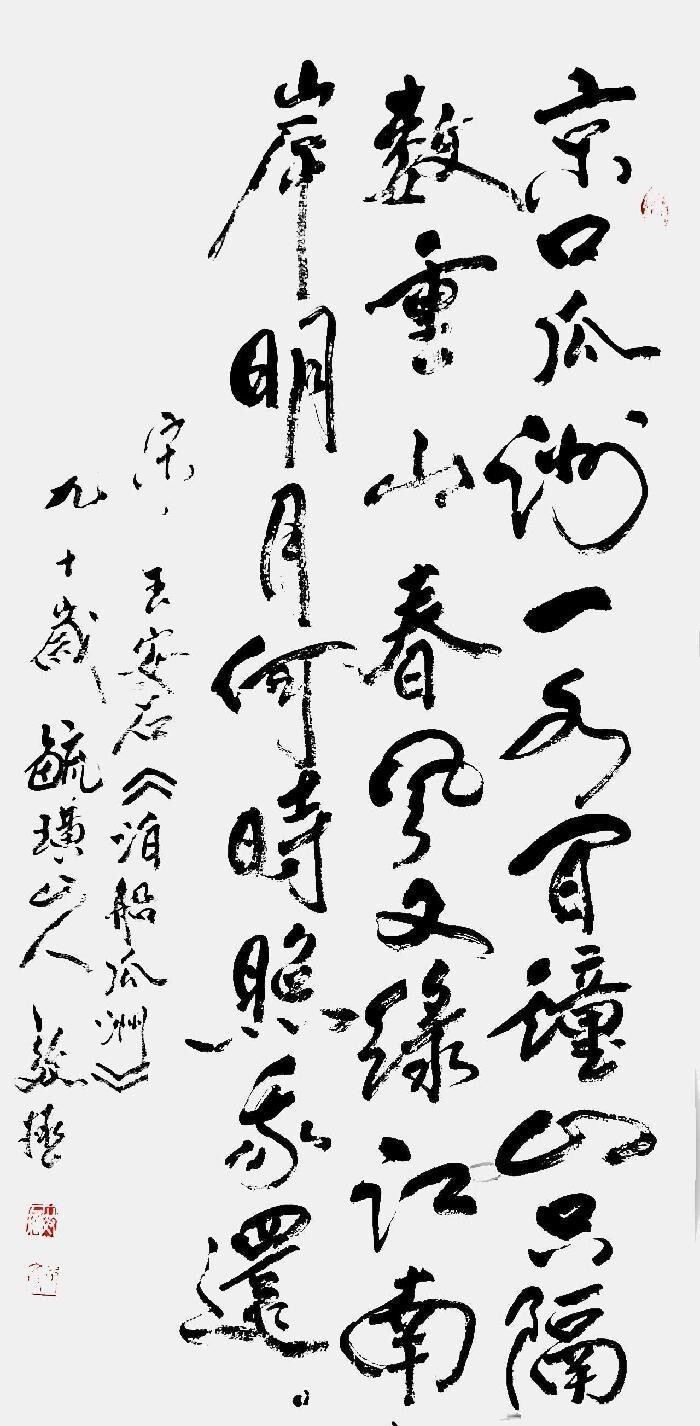 京口瓜洲一水間鐘山只隔
數重山春風又綠江南
岸明月何時照我還。
宋、王安石《泊船瓜洲》
九十歲毓璜山人